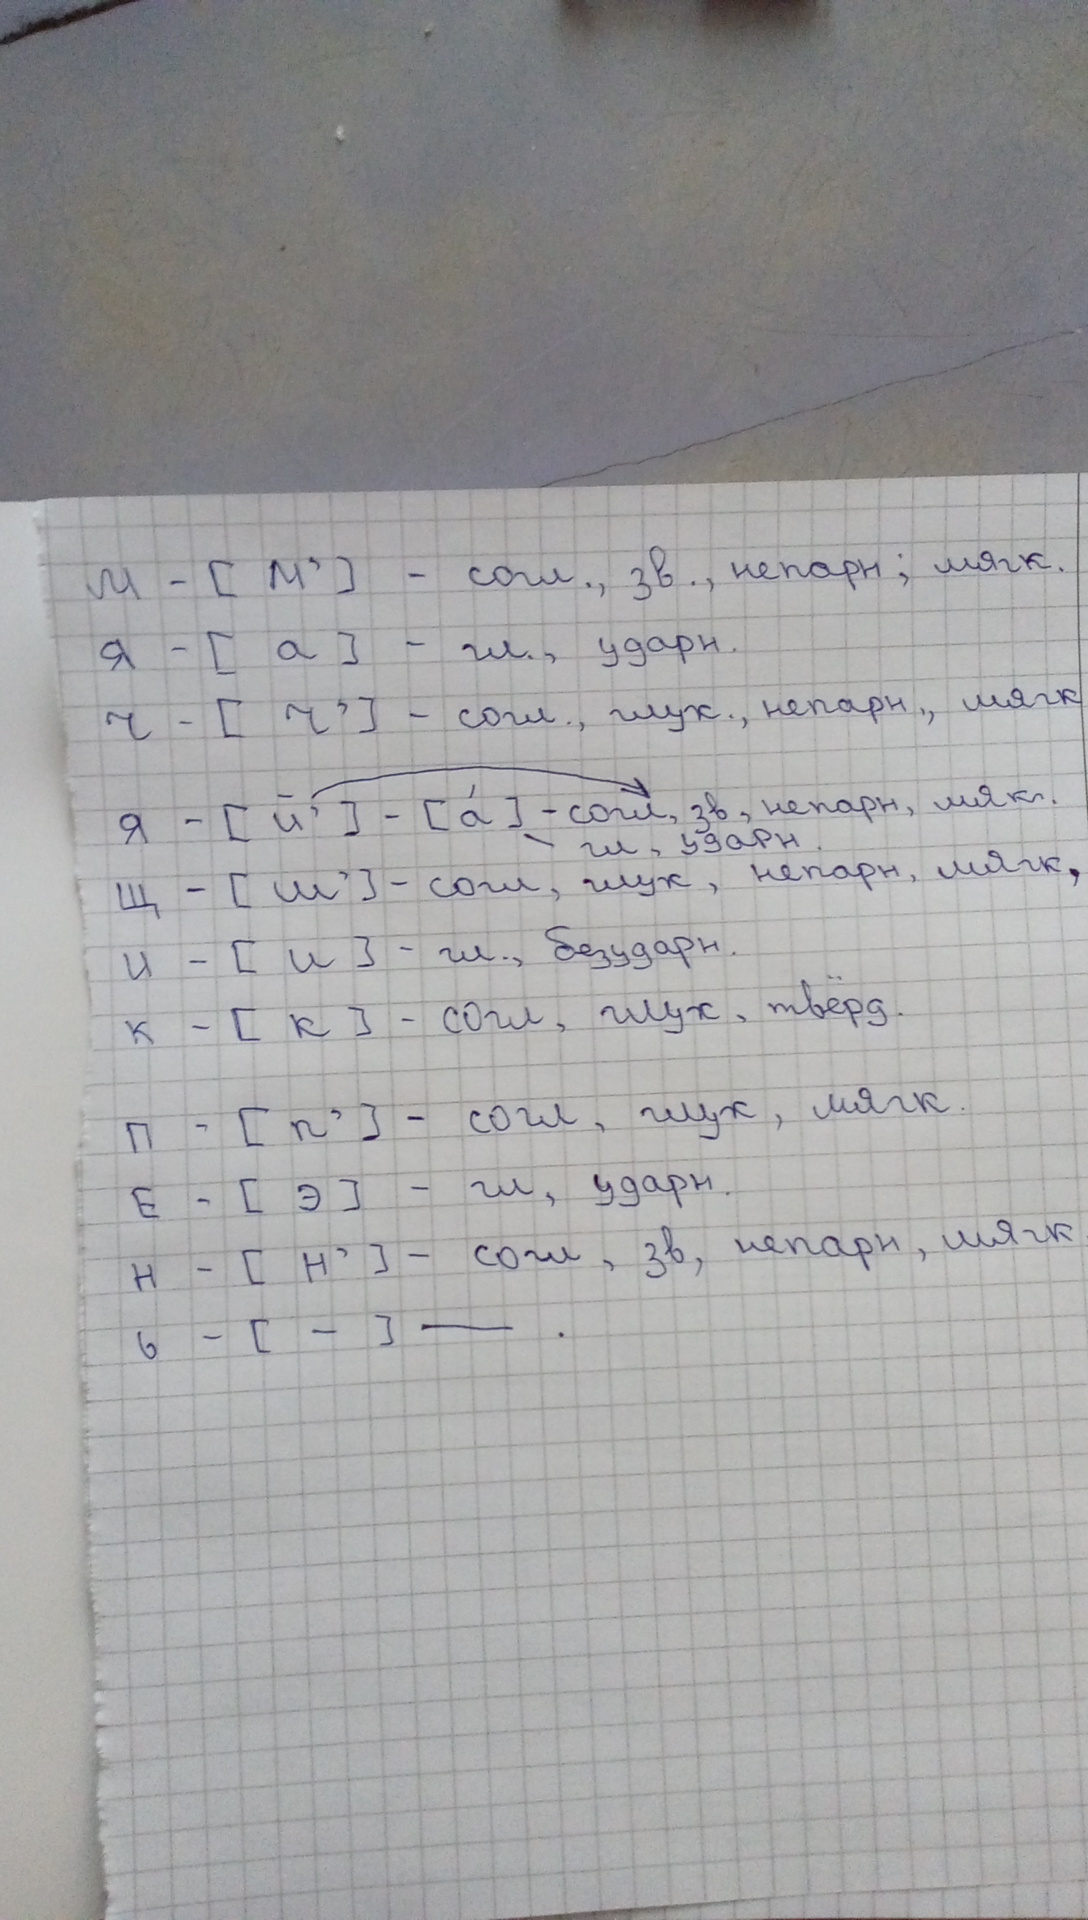 М - [ М' ] - согл., зв., непарн; мягк.
Я - [ а ] - гл., ударн.
Ч - [ Ч' ] - согл., глух., непарн., мягк
Я - [ й' ] - [ а́ ] - согл, зв, непарн, мяк.
- гл, ударн.
Щ - [ ш' ] - согл, глух, непарн, мягк,
И - [ и ] - гл., безударн.
К - [ к ] - согл, глух, твёрд.
П - [ п' ] - согл, глух, мягк.
Е - [ э ] - гл, ударн.
Н - [ Н' ] - согл, зв, непарн, мягк
ь - [ - ] — .